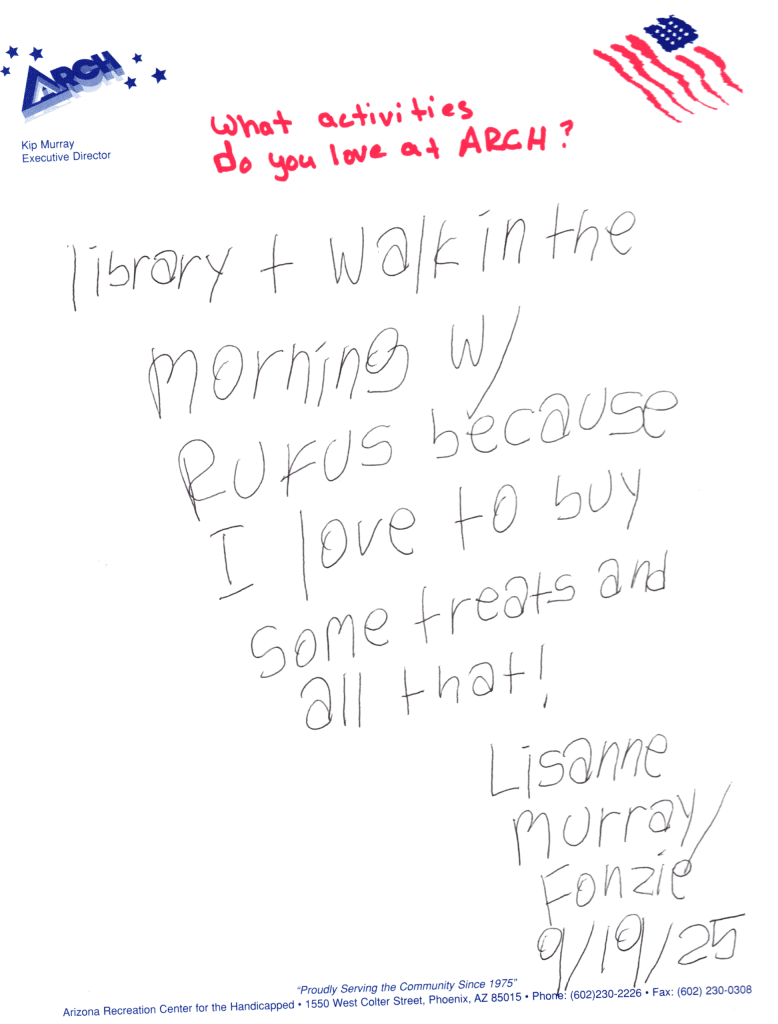 ARCH
Kip Murray
Executive Director
What activities
do you love at ARCH?
library + walk in the
morning w/
Rufus because
I love to buy
some treats and
all that!
Lisanne
Murray/
Fonzie
9/19/25
"Proudly Serving the Community Since 1975"
Arizona Recreation Center for the Handicapped • 1550 West Colter Street, Phoenix, AZ 85015 • Phone: (602)230-2226 • Fax: (602) 230-0308